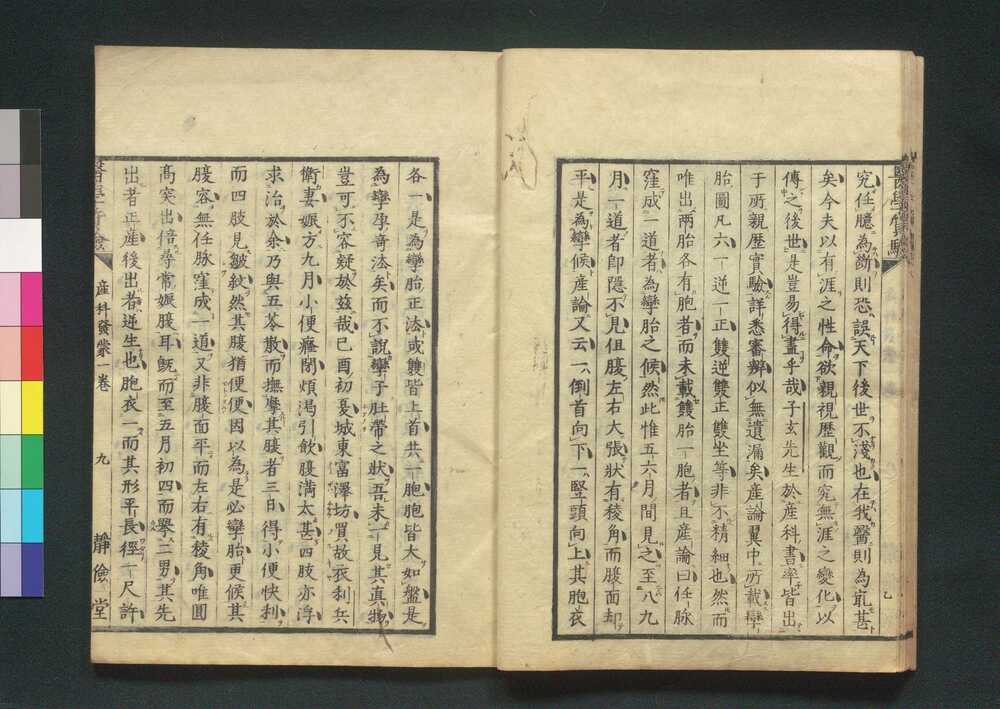 究任臆為斷則恐誤天下後世不淺也在我醫則為甚
矣今夫以有涯之性命欲親視歷觀而究無涯之變化以
傳之後世是豈易得盡乎哉子玄先生於產科書率皆出
于所親歷實驗詳悉審辯似無遺漏矣產論翼中所載孿
胎圖凡六一逆一正雙逆雙正雙坐等非不精細也然而
唯出兩胎各有胞者而未載雙胎一胞者且產論曰任脉
窪成一道者為孿胎之候然此惟五六月間見之至八九
月一道者卽隱不見但腹左右大張狀有稜角而腹面却
平是為孿候產論又云一倒首向下一竪頭向上其胞衣
各一是為孿胎正法或雙皆上首共一胞胞皆大如盤是
為孿孕奇法矣而不說孿子肚帶之狀吾未一見其真物
豈可不容疑於玆哉己酉初憂城東富澤坊買故衣利兵
衛妻娠方九月小便癃閉煩渴引飲腹滿太甚四肢亦浮
求治於余乃與五苓散而撫摩其腹者三日得小便快利
而四肢見皺紋然其腹猶便便因以為是必孿胎更候其
腹容無任脉窪成一道又非腹面平而左右有稜角唯圓
高突出倍尋常娠腹耳旣而至五月初四而擧二男其先
出者正產後出者逆生也胞衣一而其形平長徑一尺許
產科發蒙一卷
九
靜儉堂